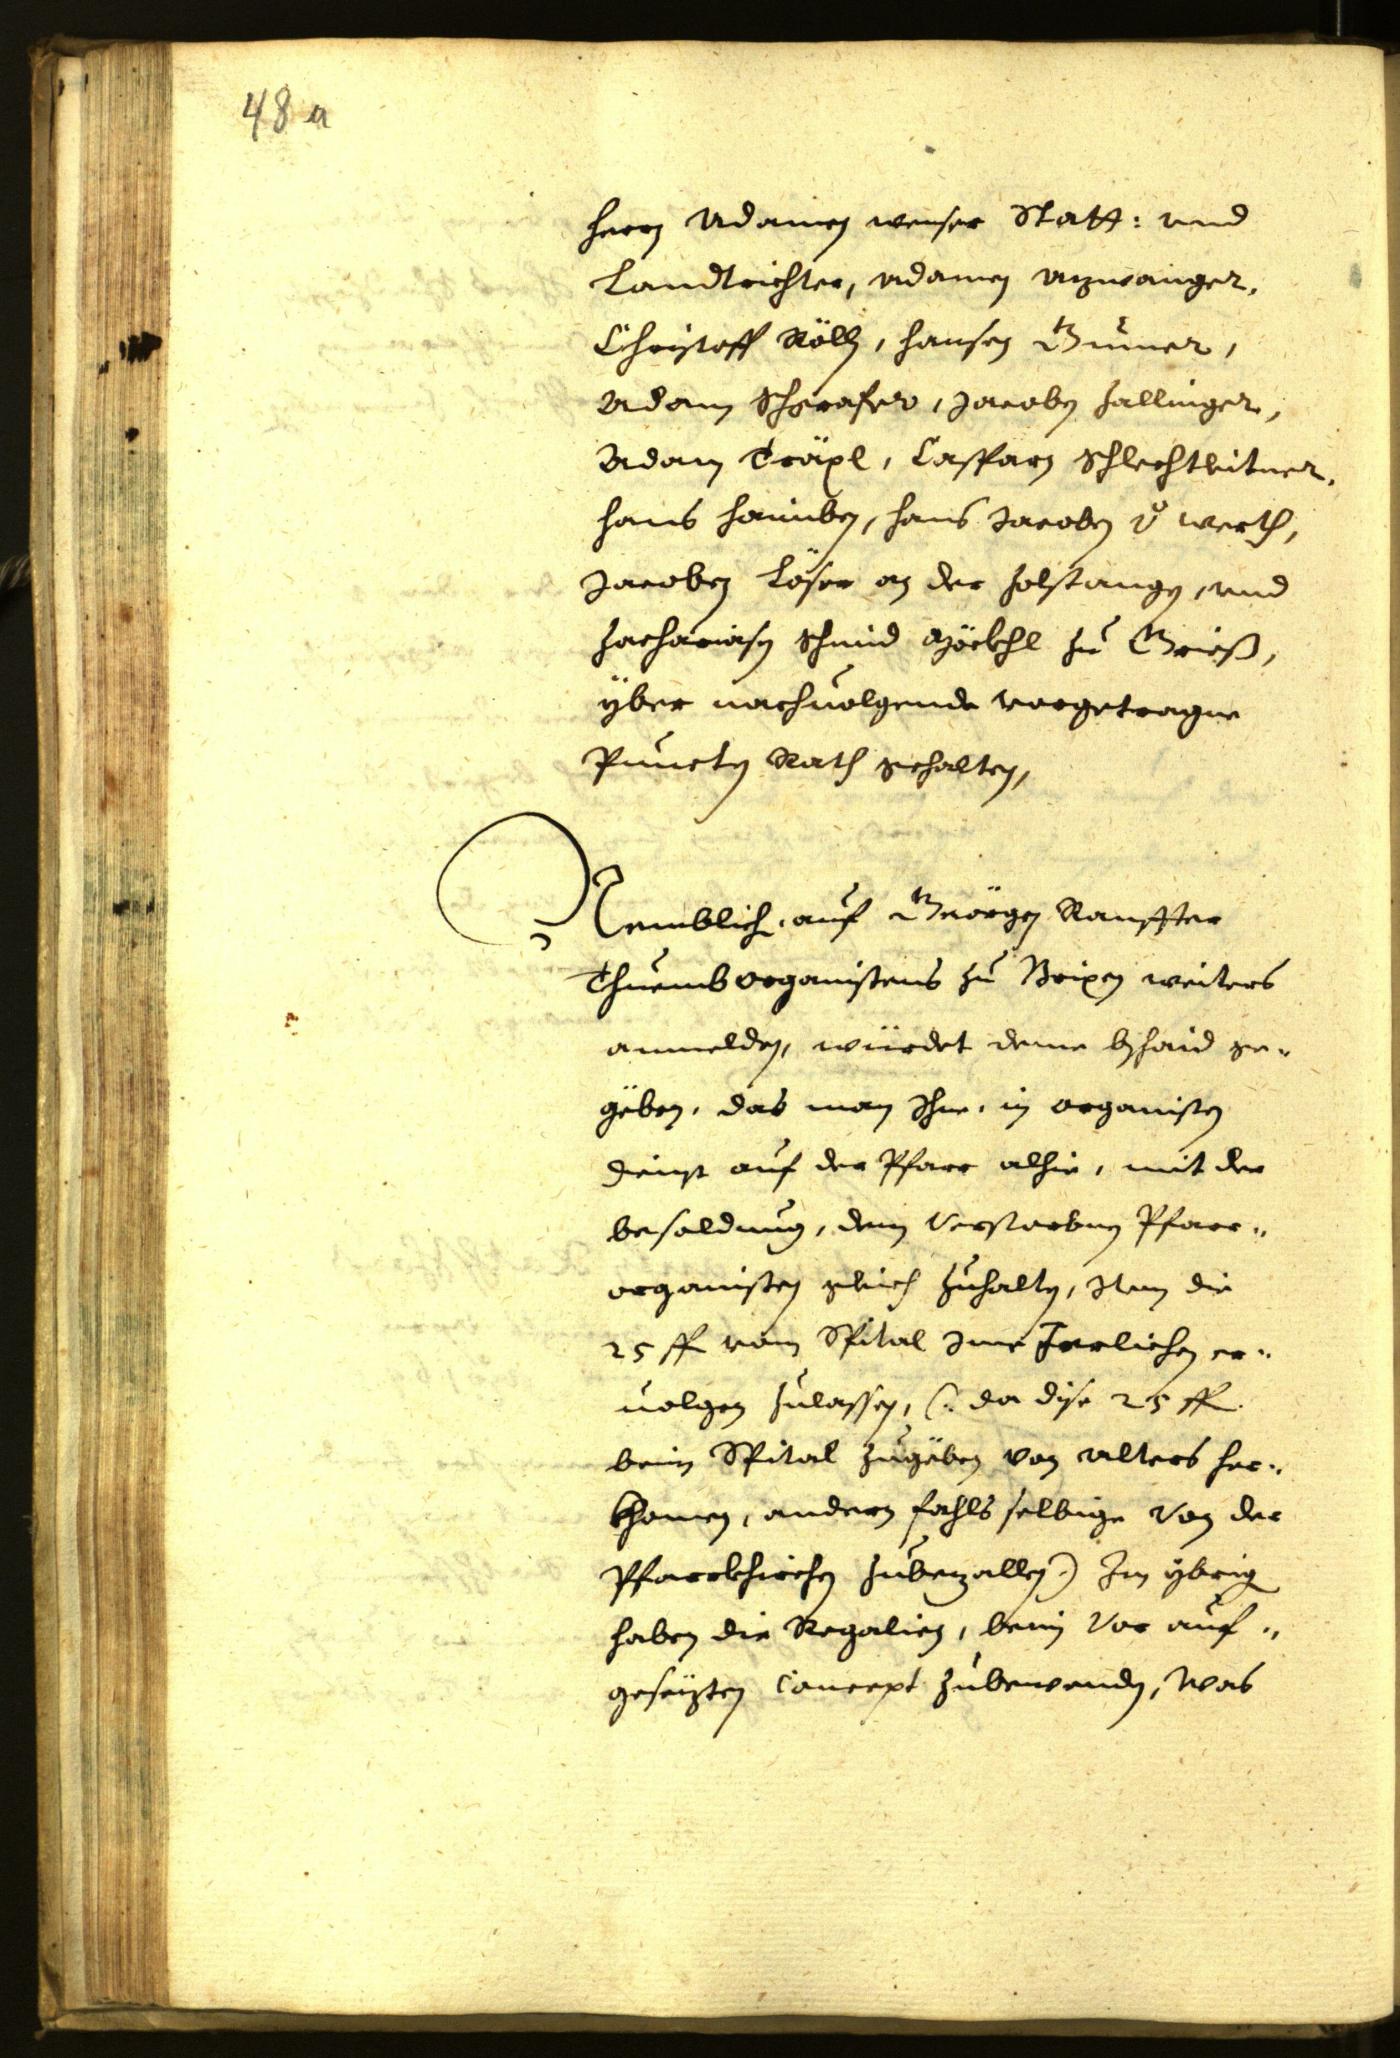 48 a
Herrn Adamen weiser Statt: und
Landtrichter, Adamen Anzwanger,
Christoff Röll, Hansen Gumer,
Adam Schgrafer, Jacoben Zallinger,
Adam Träxl, Casparn Schlechtleitner,
Hans Haimben, Hans Jacoben v. Werth,
Jacoben Löser an der Zolstangen, und
Zachariasen Schmid zu Grieß,
yber nachuolgende vorgetragne
Puncten Rath gehalten,
Nemblich, auf Geörgen Rauffter
Thuemborganistens zu Brixen weiters
anmelden, würdet deme bschaid ge„
geben, das man Ihne, in organisten
dienst auf der Pfarr alhie, mit der
besoldung, dem verstorbnen Pfarr„
organisten gleich zuhalten, Item die
25 ff vom Spital Ime Jerlichen er„
uolgen zulassen, (: da dise 25 ff
beim Spital zugeben von alters her„
khomen, andern fahls selbige von der
Pfarrkhirchen zubezallen) Im ybrig
haben die Regalien, beim vor auf„
gesetzten Concept zubewenden, was